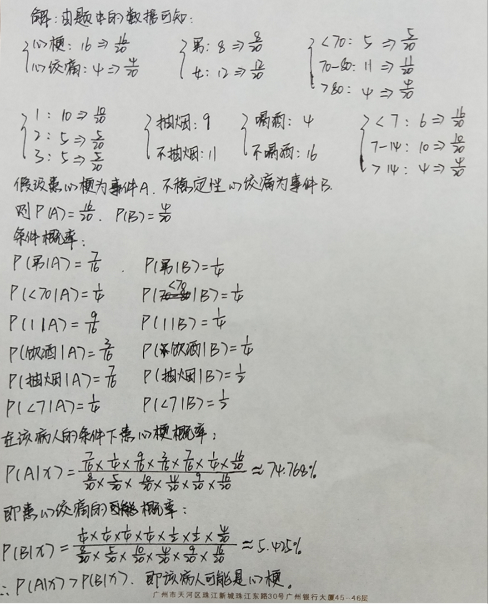 解:由题中的数据可知:
{心梗:16⇒16/20 {男:8⇒8/20 {<70:5⇒5/20
心绞痛:4⇒4/20 女:12⇒12/20 70-80:11⇒11/20
>80:4⇒4/20
{1:10⇒10/20 {抽烟:9 {喝酒:4 {<7:6⇒16/20
2:5⇒5/20 不抽烟:11 不喝酒:16 7-14:10⇒10/20
3:5⇒5/20 >14:4⇒4/20
假设患心梗为事件A.不稳定性心绞痛为事件B.
则P(A)=16/20.P(B)=4/20
条件概率:
P(男|A)=7/16 . P(男|B)=1/4
P(<70|A)=1/4 P(<70|B)=1/4
P(1|A)=9/16 P(1|B)=1/4
P(饮酒|A)=3/16 P(饮酒|B)=1/4
P(抽烟|A)=7/16 P(抽烟|B)=1/2
P(<7|A)=1/4 P(<7|B)=1/2
在该病人的条件下患心梗概率:
P(A|X)=7/16×1/4×9/16×3/16×7/16×1/4×16/20 / 8/20×5/20×10/20×4/20×9/20×6/20≈74.768%
即患心绞痛的概率:
P(B|X)=1/4×1/4×1/4×1/4×1/2×1/2×4/20 / 8/20×5/20×10/20×4/20×9/20×6/20≈5.425%
∴P(A|X)>P(B|X).即该病人可能是心梗。
广州市天河区珠江新城珠江东路30号广州银行大厦45-46层